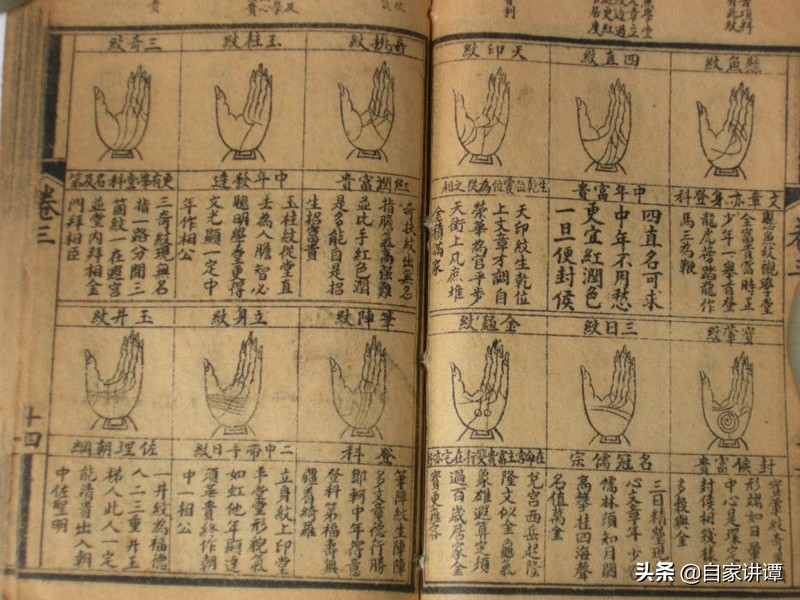 懸魚紋
文章亦身登科
懸魚紋襯學堂
全富貴當時正
少年一舉首登
龍虎榜踏龍作
馬三為鞭
四直紋
中年富貴
四直名可求
中年不用愁
更宜紅潤色
一旦便封侯
天印紋
生乾位震位為從文相
天印紋生乾位
上文章才調自
榮華為官平步
天衢上凡庶堆
金積滿家
寶暈紋
封侯富貴
寶暈紋奇
形端如日暈
中心是環定
封侯相錢樣
多穀與金
三日紋
名冠儒宗
三日精瑩現
心文章年少
儒林須知月闕
高攀桂四海聲
名值萬金
金龜紋
兌宮西岳起隆
隆文似金龜氣
象雄遐算定須
過百歲居家金
寶更雍容
奇扶紋
紅潤富貴
奇扶紋出無名
指脈氣高強難
並比手紅色潤
是多能自是招
生招富貴
玉柱紋
中年秋達
玉柱紋從堂直
去為人膽智必
聰明學堂更得
文光顯一定中
年作相公
三奇紋
更有學堂科名及第
三奇紋現無名
指一路分開三
箇紋一在遶宮
並堂內拜相金
門拜相臣
筆陣紋
登科
筆陣紋生陣陣
多文章德行勝
鄒軻中年得意
登科第福壽無
疆著綺羅
立身紋
二中帶千日紋
立身紋上印堂
平堂堂形貌氣
如虹他年顯達
須榮貴終作朝
中一相公
玉井紋
佐理朝綱
一井紋為福德
人二三重井玉
梯人此人一定
能清貴出入朝
中佐聖明
卷三
十四
头条 @自家讲谭